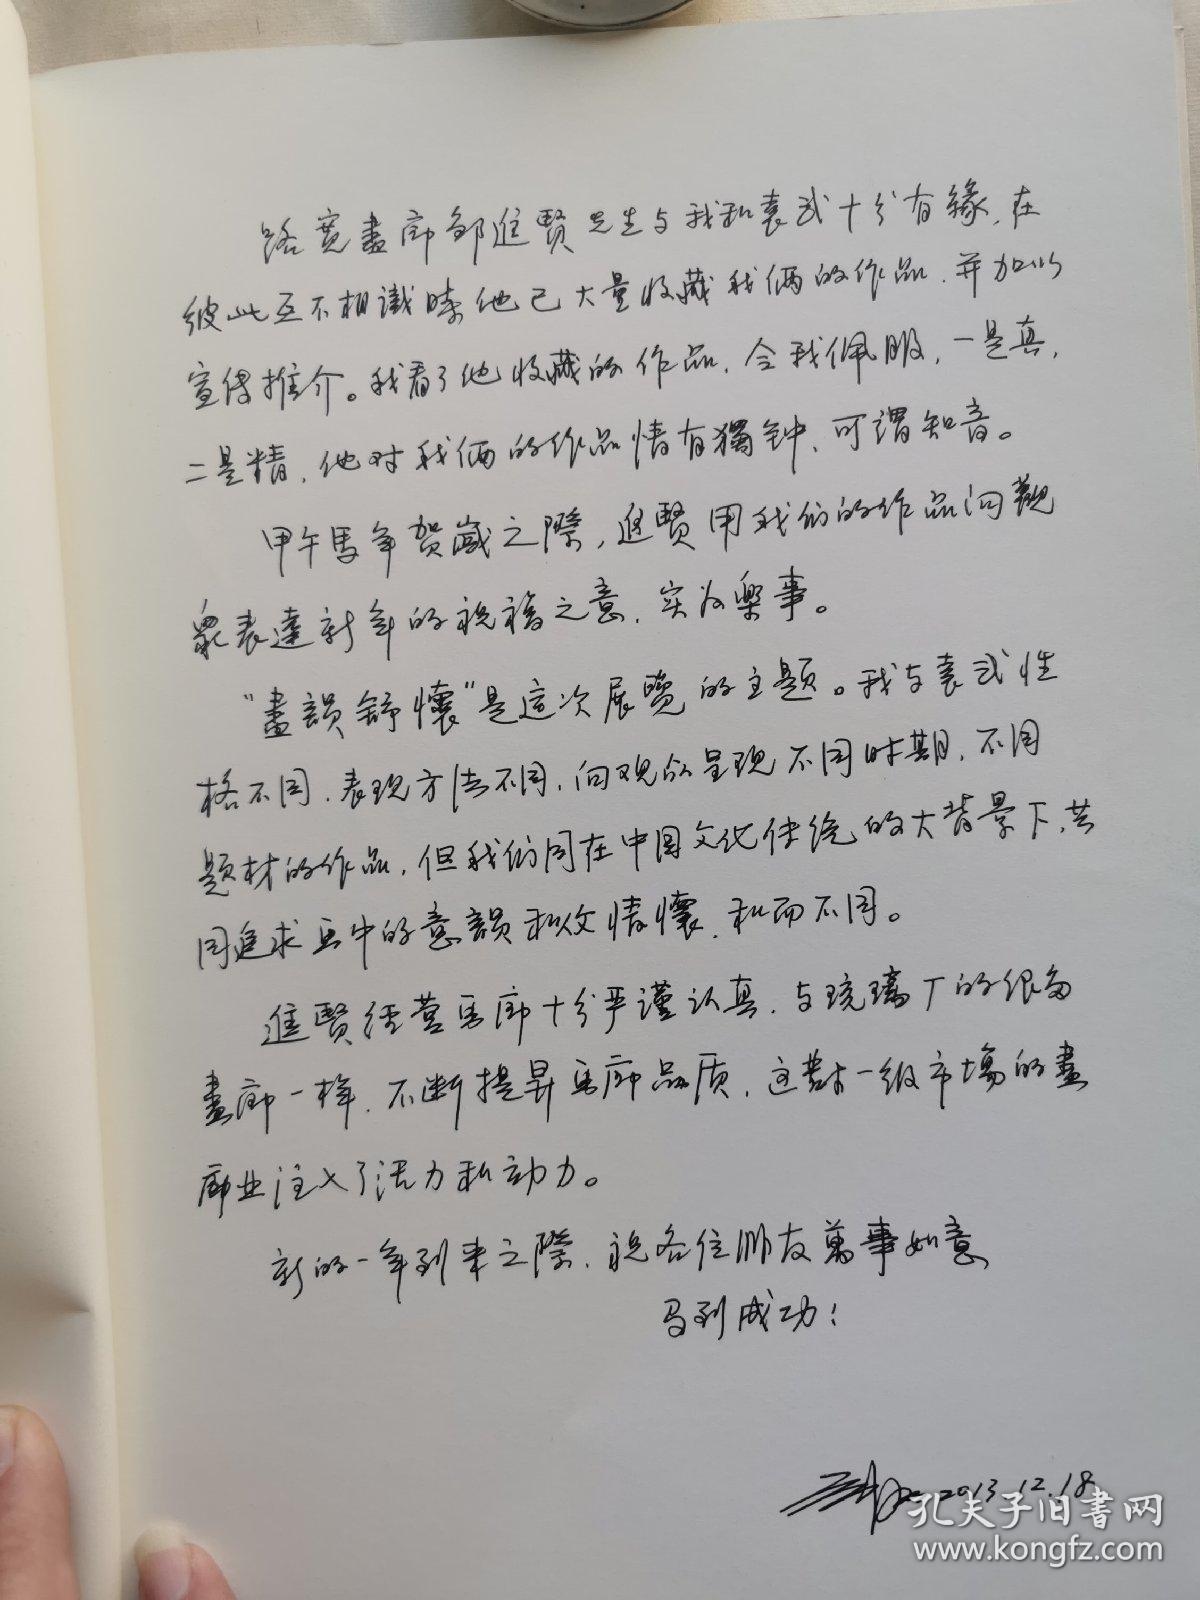 路寬畫廊鄒進賢先生与我和袁武十分有緣，在
彼此互不相識時他已大量收藏我俩的作品，并加以
宣传推介。我看了他收藏的作品，令我佩服，一是真，
二是精，他对我俩的作品情有獨钟，可謂知音。
甲午馬年贺歲之際，進賢用我们的作品向觀
眾表達新年的祝福之意，实为樂事。
“畫韻舒懷”是這次展覽的主题。我与袁武性
格不同，表现方法不同，向观众呈现不同时期，不同
题材的作品，但我们同在中国文化传统的大背景下，共
同追求画中的意韻和人文情懷，和而不同。
進賢经营画廊十分严謹认真，与琉璃厂的很多
畫廊一样，不断提昇画廊品质，这對一级市場的畫
廊业注入了活力和动力。
新的一年到来之際，祝各位朋友萬事如意
马到成功！
2013.12.18
孔夫子旧书网
www.kongfz.com